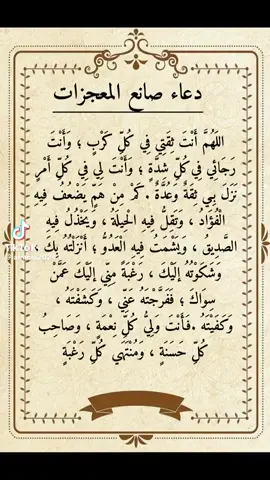 دعاء صانع المعجزات
اللَّهُمَّ أَنْتَ ثِقَتِي فِي كُلِّ كَرْبٍ ؛ وَأَنْتَ
رَجَائِي فِي كُلِّ شِدَّةٍ ؛ وَأَنْتَ لِي فِي كُلِّ أَمْرٍ
نَزَلَ بِي ثِقَةٌ وَعُدَّةٌ . كَمْ مِنْ هَمٍّ يَضْعُفُ فِيهِ
الْفُؤَادُ ، وَتَقِلُّ فِيهِ الْحِيلَةُ ، وَيَخْذُلُ فِيهِ
الصَّدِيقُ ، وَيَشْمَتُ فِيهِ الْعَدُوُّ ؛ أَنْزَلْتُهُ بِكَ ،
وَشَكَوْتُهُ إِلَيْكَ ، رَغْبَةً مِنِّي إِلَيْكَ عَمَّنْ
سِوَاكَ ؛ فَفَرَّجْتَهُ عَنِّي ، وَكَشَفْتَهُ ،
وَكَفَيْتَهُ . فَأَنْتَ وَلِيُّ كُلِّ نِعْمَةٍ ، وَصَاحِبُ
كُلِّ حَسَنَةٍ ، وَمُنْتَهَى كُلِّ رَغْبَةٍ